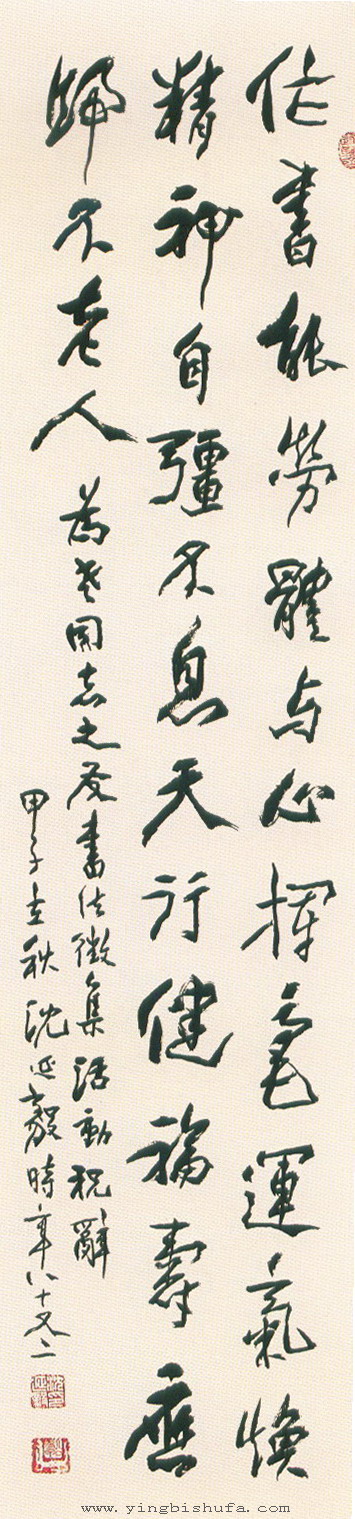 作書能勞體与心揮毫運氣煥
精神自彊不息天行健福壽應
歸不老人
為老同志之友書法徵集活動祝辭
甲子立秋沈延毅時年八十又二
www.yingbishufa.com